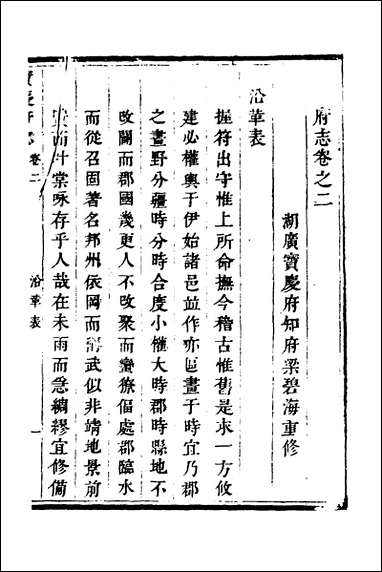 府志卷之二
湖廣寶慶府知府梁碧海重修
沿革表
握符出守惟上所命撫今稽古惟舊是求一方攸
建必權輿于伊始諸邑並作亦區畫于時宜乃郡
之畫野分疆時分時合度小懽大時郡時縣地不
改闢而郡國幾更人不改聚而蠻獠偪處郡臨水
而從召固著名邦州依岡而武似非靖地景前
而甘棠咏存乎人哉在未雨而急綢繆宜修備
寶慶府志 卷二 沿革表 一